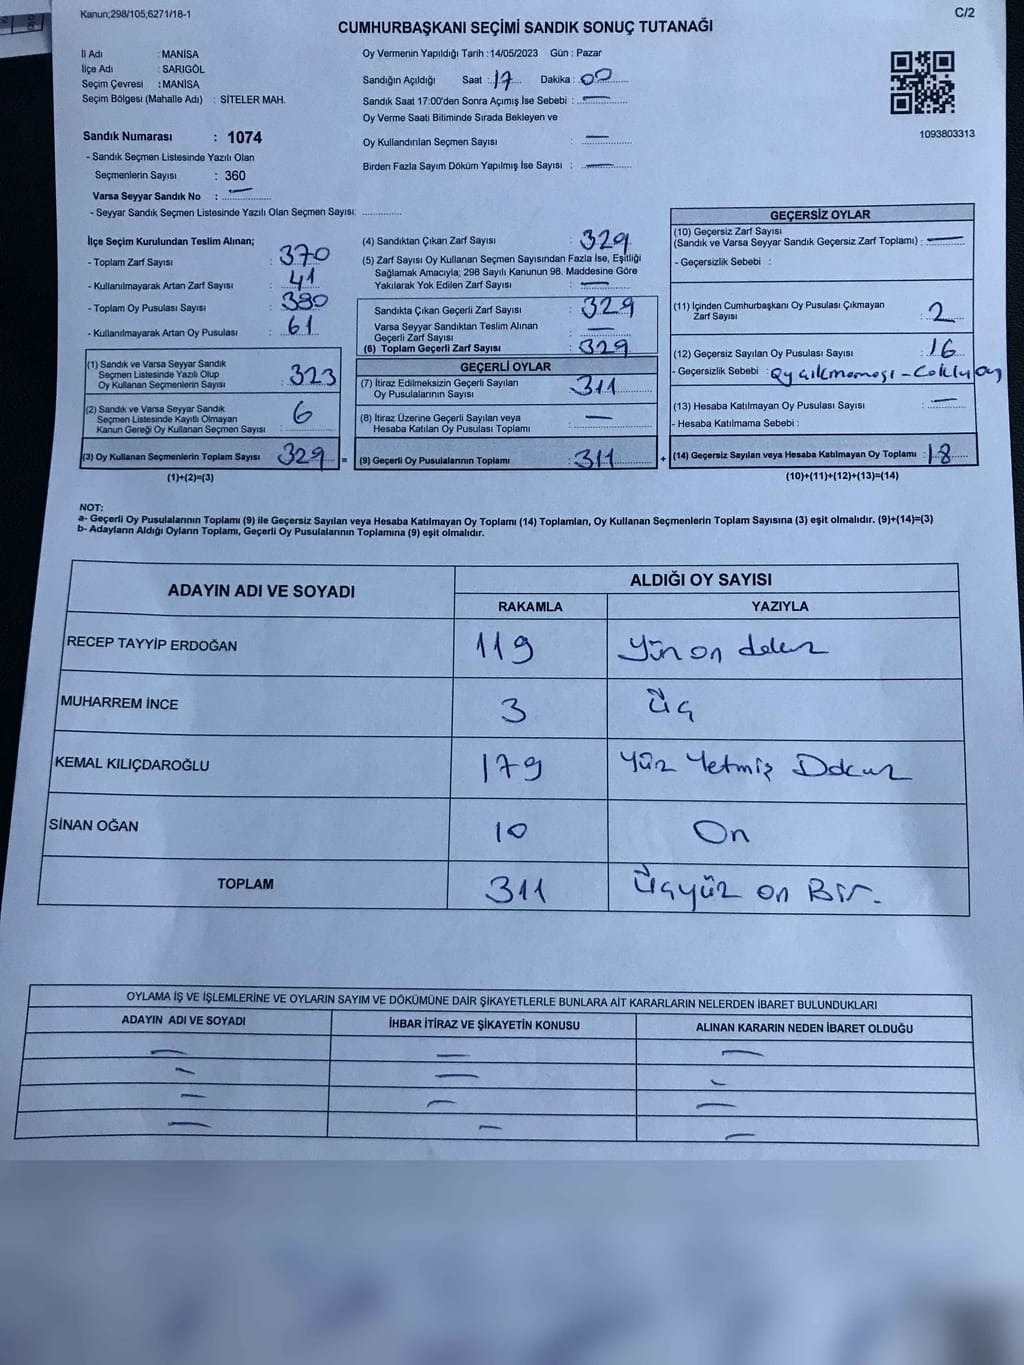 Kanun;298/105;6271/18-1
C/2
CUMHURBAŞKANI SEÇİMİ SANDIK SONUÇ TUTANAĞI
İl Adı : MANİSA
İlçe Adı : SARIGÖL
Seçim Çevresi : MANİSA
Seçim Bölgesi (Mahalle Adı) : SİTELER MAH.
Sandık Numarası : 1074
- Sandık Seçmen Listesinde Yazılı Olan
Seçmenlerin Sayısı : 360
Varsa Seyyar Sandık No : —
- Seyyar Sandık Seçmen Listesinde Yazılı Olan Seçmen Sayısı: ..............
Oy Vermenin Yapıldığı Tarih : 14/05/2023 Gün : Pazar
Sandığın Açıldığı Saat : 17 Dakika : 00
Sandık Saat 17:00'den Sonra Açımış İse Sebebi : —
Oy Verme Saati Bitiminde Sırada Bekleyen ve
Oy Kullandırılan Seçmen Sayısı : —
Birden Fazla Sayım Döküm Yapılmış İse Sayısı : —
1093803313
İlçe Seçim Kurulundan Teslim Alınan;
- Toplam Zarf Sayısı : 370
- Kullanılmayarak Artan Zarf Sayısı : 41
- Toplam Oy Pusulası Sayısı : 390
- Kullanılmayarak Artan Oy Pusulası : 61
(1) Sandık ve Varsa Seyyar Sandık
Seçmen Listesinde Yazılı Olup
Oy Kullanan Seçmenlerin Sayısı : 323
(2) Sandık ve Varsa Seyyar Sandık
Seçmen Listesinde Kayıtlı Olmayan
Kanun Gereği Oy Kullanan Seçmen Sayısı : 6
(3) Oy Kullanan Seçmenlerin Toplam Sayısı : 329 =
(1)+(2)=(3)
(4) Sandıktan Çıkan Zarf Sayısı : 329
(5) Zarf Sayısı Oy Kullanan Seçmen Sayısından Fazla İse, Eşitliği
Sağlamak Amacıyla; 298 Sayılı Kanunun 98. Maddesine Göre
Yakılarak Yok Edilen Zarf Sayısı : —
Sandıkta Çıkan Geçerli Zarf Sayısı : 329
Varsa Seyyar Sandıktan Teslim Alınan
Geçerli Zarf Sayısı : —
(6) Toplam Geçerli Zarf Sayısı : 329
GEÇERLİ OYLAR
(7) İtiraz Edilmeksizin Geçerli Sayılan
Oy Pusulalarının Sayısı : 311
(8) İtiraz Üzerine Geçerli Sayılan veya
Hesaba Katılan Oy Pusulası Toplamı : —
(9) Geçerli Oy Pusulalarının Toplamı : 311 +
GEÇERSİZ OYLAR
(10) Geçersiz Zarf Sayısı
(Sandık ve Varsa Seyyar Sandık Geçersiz Zarf Toplamı) : —
- Geçersizlik Sebebi :
(11) İçinden Cumhurbaşkanı Oy Pusulası Çıkmayan
Zarf Sayısı : 2
(12) Geçersiz Sayılan Oy Pusulası Sayısı : 16
- Geçersizlik Sebebi : Oy çıkmaması - Çoklu oy
(13) Hesaba Katılmayan Oy Pusulası Sayısı : —
- Hesaba Katılmama Sebebi :
(14) Geçersiz Sayılan veya Hesaba Katılmayan Oy Toplamı : 18
(10)+(11)+(12)+(13)=(14)
NOT:
a- Geçerli Oy Pusulalarının Toplamı (9) ile Geçersiz Sayılan veya Hesaba Katılmayan Oy Toplamı (14) Toplamları, Oy Kullanan Seçmenlerin Toplam Sayısına (3) eşit olmalıdır. (9)+(14)=(3)
b- Adayların Aldığı Oyların Toplamı, Geçerli Oy Pusulalarının Toplamına (9) eşit olmalıdır.
ADAYIN ADI VE SOYADI
ALDIĞI OY SAYISI
RAKAMLA YAZIYLA
RECEP TAYYİP ERDOĞAN 119 Yüz on dokuz
MUHARREM İNCE 3 Üç
KEMAL KILIÇDAROĞLU 179 Yüz Yetmiş Dokuz
SİNAN OĞAN 10 On
TOPLAM 311 Üçyüz on Bir.
OYLAMA İŞ VE İŞLEMLERİNE VE OYLARIN SAYIM VE DÖKÜMÜNE DAİR ŞİKAYETLERLE BUNLARA AİT KARARLARIN NELERDEN İBARET BULUNDUKLARI
ADAYIN ADI VE SOYADI İHBAR İTİRAZ VE ŞİKAYETİN KONUSU ALINAN KARARIN NEDEN İBARET OLDUĞU
— — —
— — —
— — —
— — —